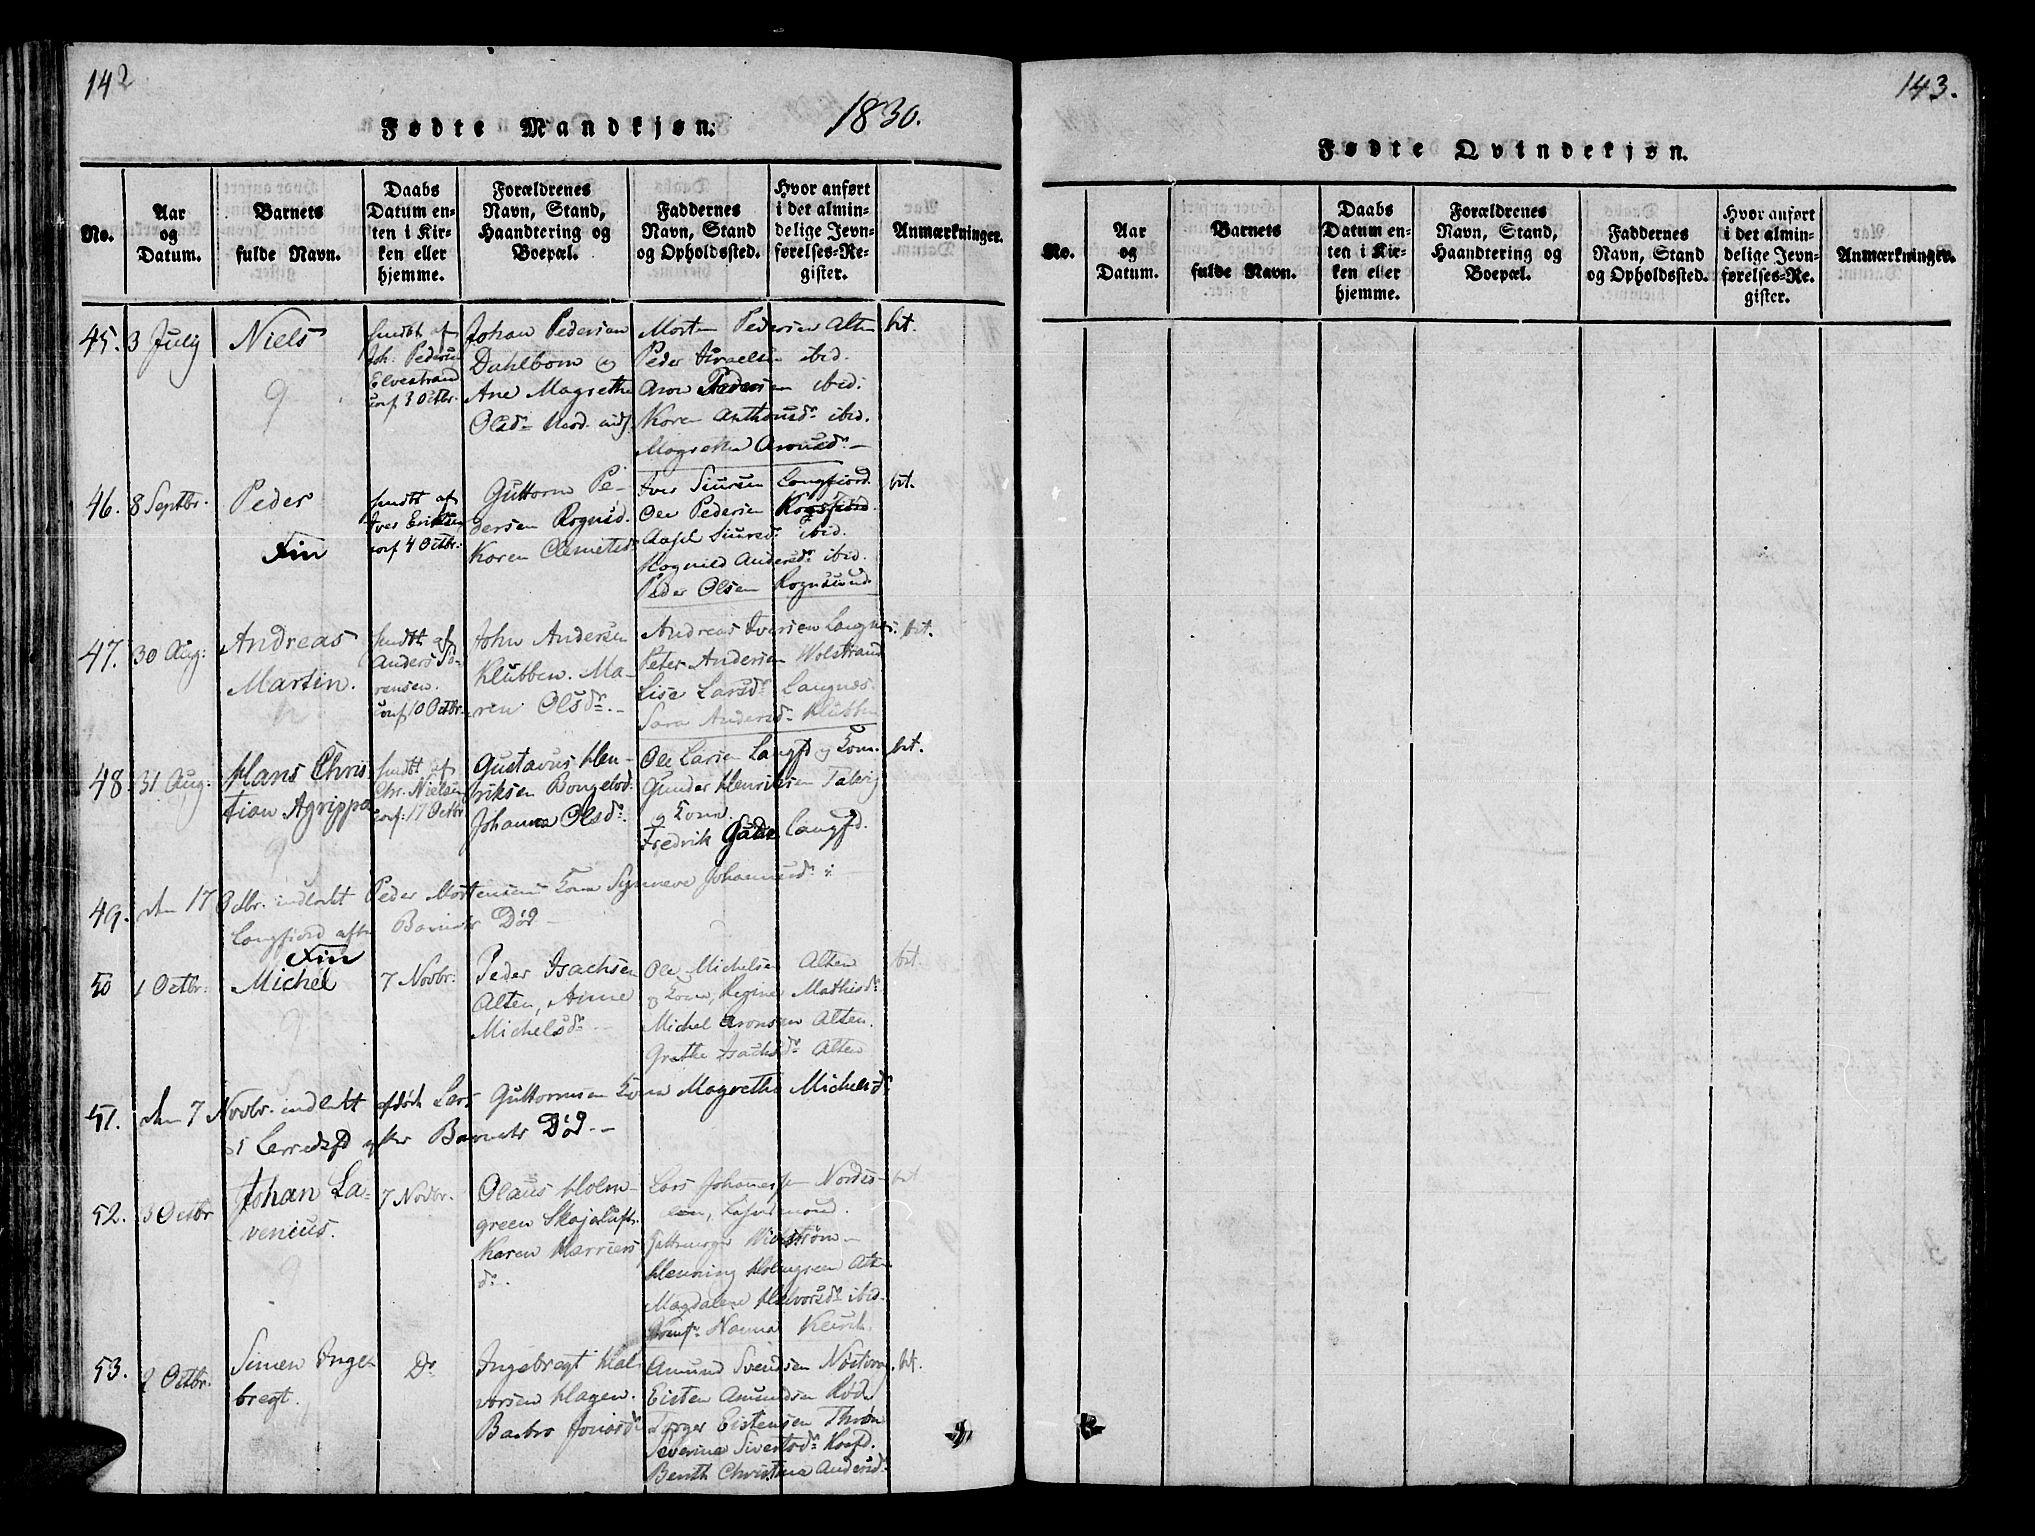 142
Fødte Mandkjøn.
1830.
No.
Aar og Datum.
Barnets fulde Navn.
Daabs Datum enten i Kirken eller hjemme.
Forældrenes Navn, Stand, Haandtering og Boepæl.
Faddernes Navn, Stand og Opholdssted.
Hvor anført i det almindelige Jevnførelses-Register.
Anmærkninger.
45. 3 July
Niels
hmdt af
Joh: Pedersen
Elvestrand
conf. 3 Octbr.
Johan Pedersen
Dahlbom og
Ane Magrethe
Olsdr
Morten Pedersen Alten
Peder Israelsen ibid.
Aron Pedersen ibid.
Karen Anthonsdr ibid.
Magrethe Aronsdr –
46. 8 Septbr.
Peder
Fin
hmdt af
Iver Eriksen
conf 4 Octbr.
Guttorm Pe-
dersen Rognsd.
Karen Clemetsdr
Iver Siursen Langfjord
Ole Pedersen Rogsfiord
Siursdr ibid.
Rognild Andersdr ibid.
Peder Olsen Rognsund
47. 30 Aug:
Andreas
Martin.
hmdt af
Anders Sö-
rensen.
conf 10 Octbr.
John Andersen
Klubben. Ma-
ren Olsdr. –
Andreas Iversen Langnes
Peter Andersen Wolstrand
Lise Larsdr Langnes.
Sara Andersdr Klubben
48. 31 Aug:
Hans Chris
tian Agrippa
hmdt af
Chr. Nielsen
conf: 17 Octbr
Gustavus Hen-
riksen
Johanna Olsdr.
Ole Larsen Langfd og Kone.
Gunder Henriksen Talvig
og Kone.
Fredrik Langfd.
49. den 17 Octbr. indledt Peder Mortensens Kone Synneve Johannesdr i
Langfiord efter Barnets Död –
Fin
50 4 Octbr:
Michel
7 Novbr:
Peder Isachsen
Alten,
Michelsdr –
Ole Michelsen Alten
og Kone, Regine Mathisdr
Michel Aronsen Alten.
Grethe Isachsdr Alten
51. den 7 Novbr. indledt Lars Guttormsen Kone Magrethe Michelsdr
i efter Barnets Död. –
52. 3 Octbr
Johan La-
venius.
7 Novbr.
Olaus Holm-
green
Karen
dr.
Lars
Henning Holmgreen Alten
Magdalene Halvorsdr ibid.
Hanna
53. 2 Octbr.
Simen Inge-
bregt.
Do
Ingebregt Hal-
vorsen Hagen.
Barbro Jonsdr
Amund Svendsen
Eisten Amundsen
Torger Eistensen
Severine Sivertsdr
Christina Andersdr
143.
Fødte Qvindekjøn.
No.
Aar og Datum.
Barnets fulde Navn.
Daabs Datum enten i Kirken eller hjemme.
Forældrenes Navn, Stand, Haandtering og Boepæl.
Faddernes Navn, Stand og Opholdssted.
Hvor anført i det almindelige Jevnførelses-Register.
Anmærkninger.